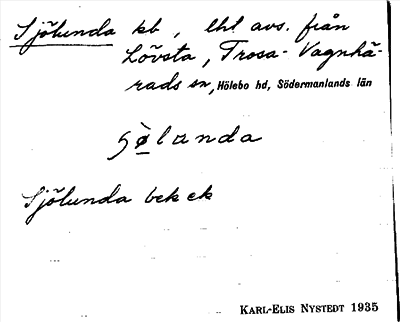 Sjölunda kb, lht avs. från
Lövsta, Trosa-Vagnhä-
rads sn, Hölebo hd, Södermanlands län
Sjölunda bek ek
KARL-ELIS NYSTEDT 1935